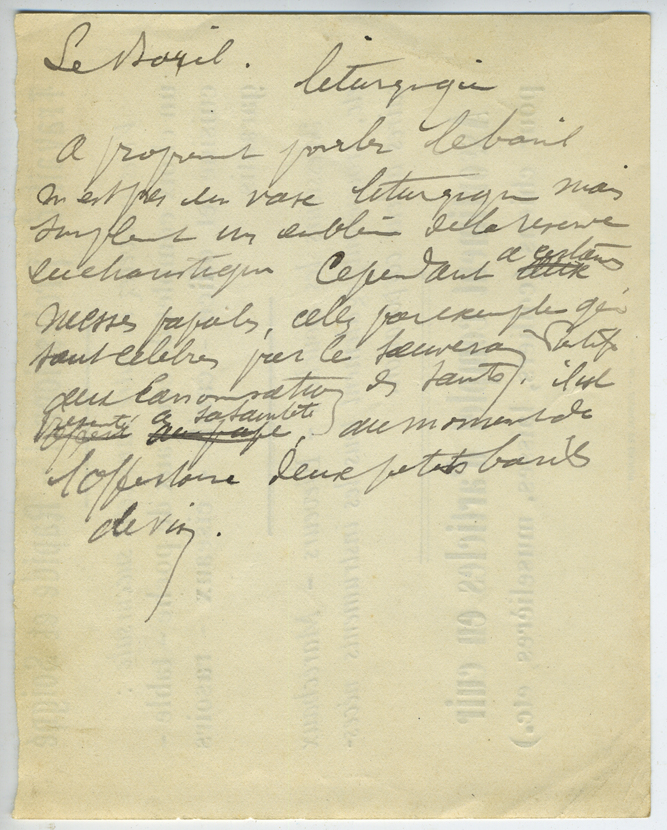 Le Baril.
liturgique
A proprement parler le baril
n'est pas un vase liturgique mais
simplement un emblème de la réserve
eucharistique Cependant à certaines
messes papales, celles par exemple qui
sont célébrés par le souverain Pontife
aux canonisations des saints, il est
présenté à sa sainteté
offert au pape, au moment de
l'Offertoire deux petits barils
de vin.
articles en cuir
muselières, etc.)